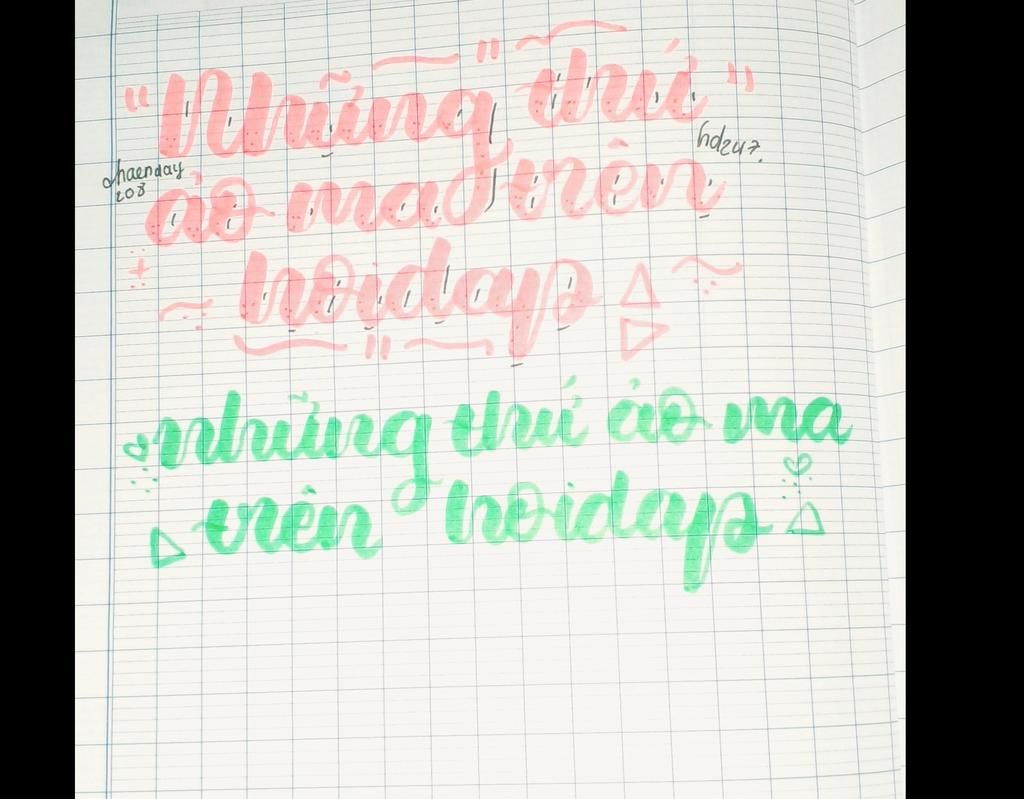 "Những thứ"
hd247.
chaenday
203
ảo ma trên
hoidap
những thứ ảo ma
trên hoidap